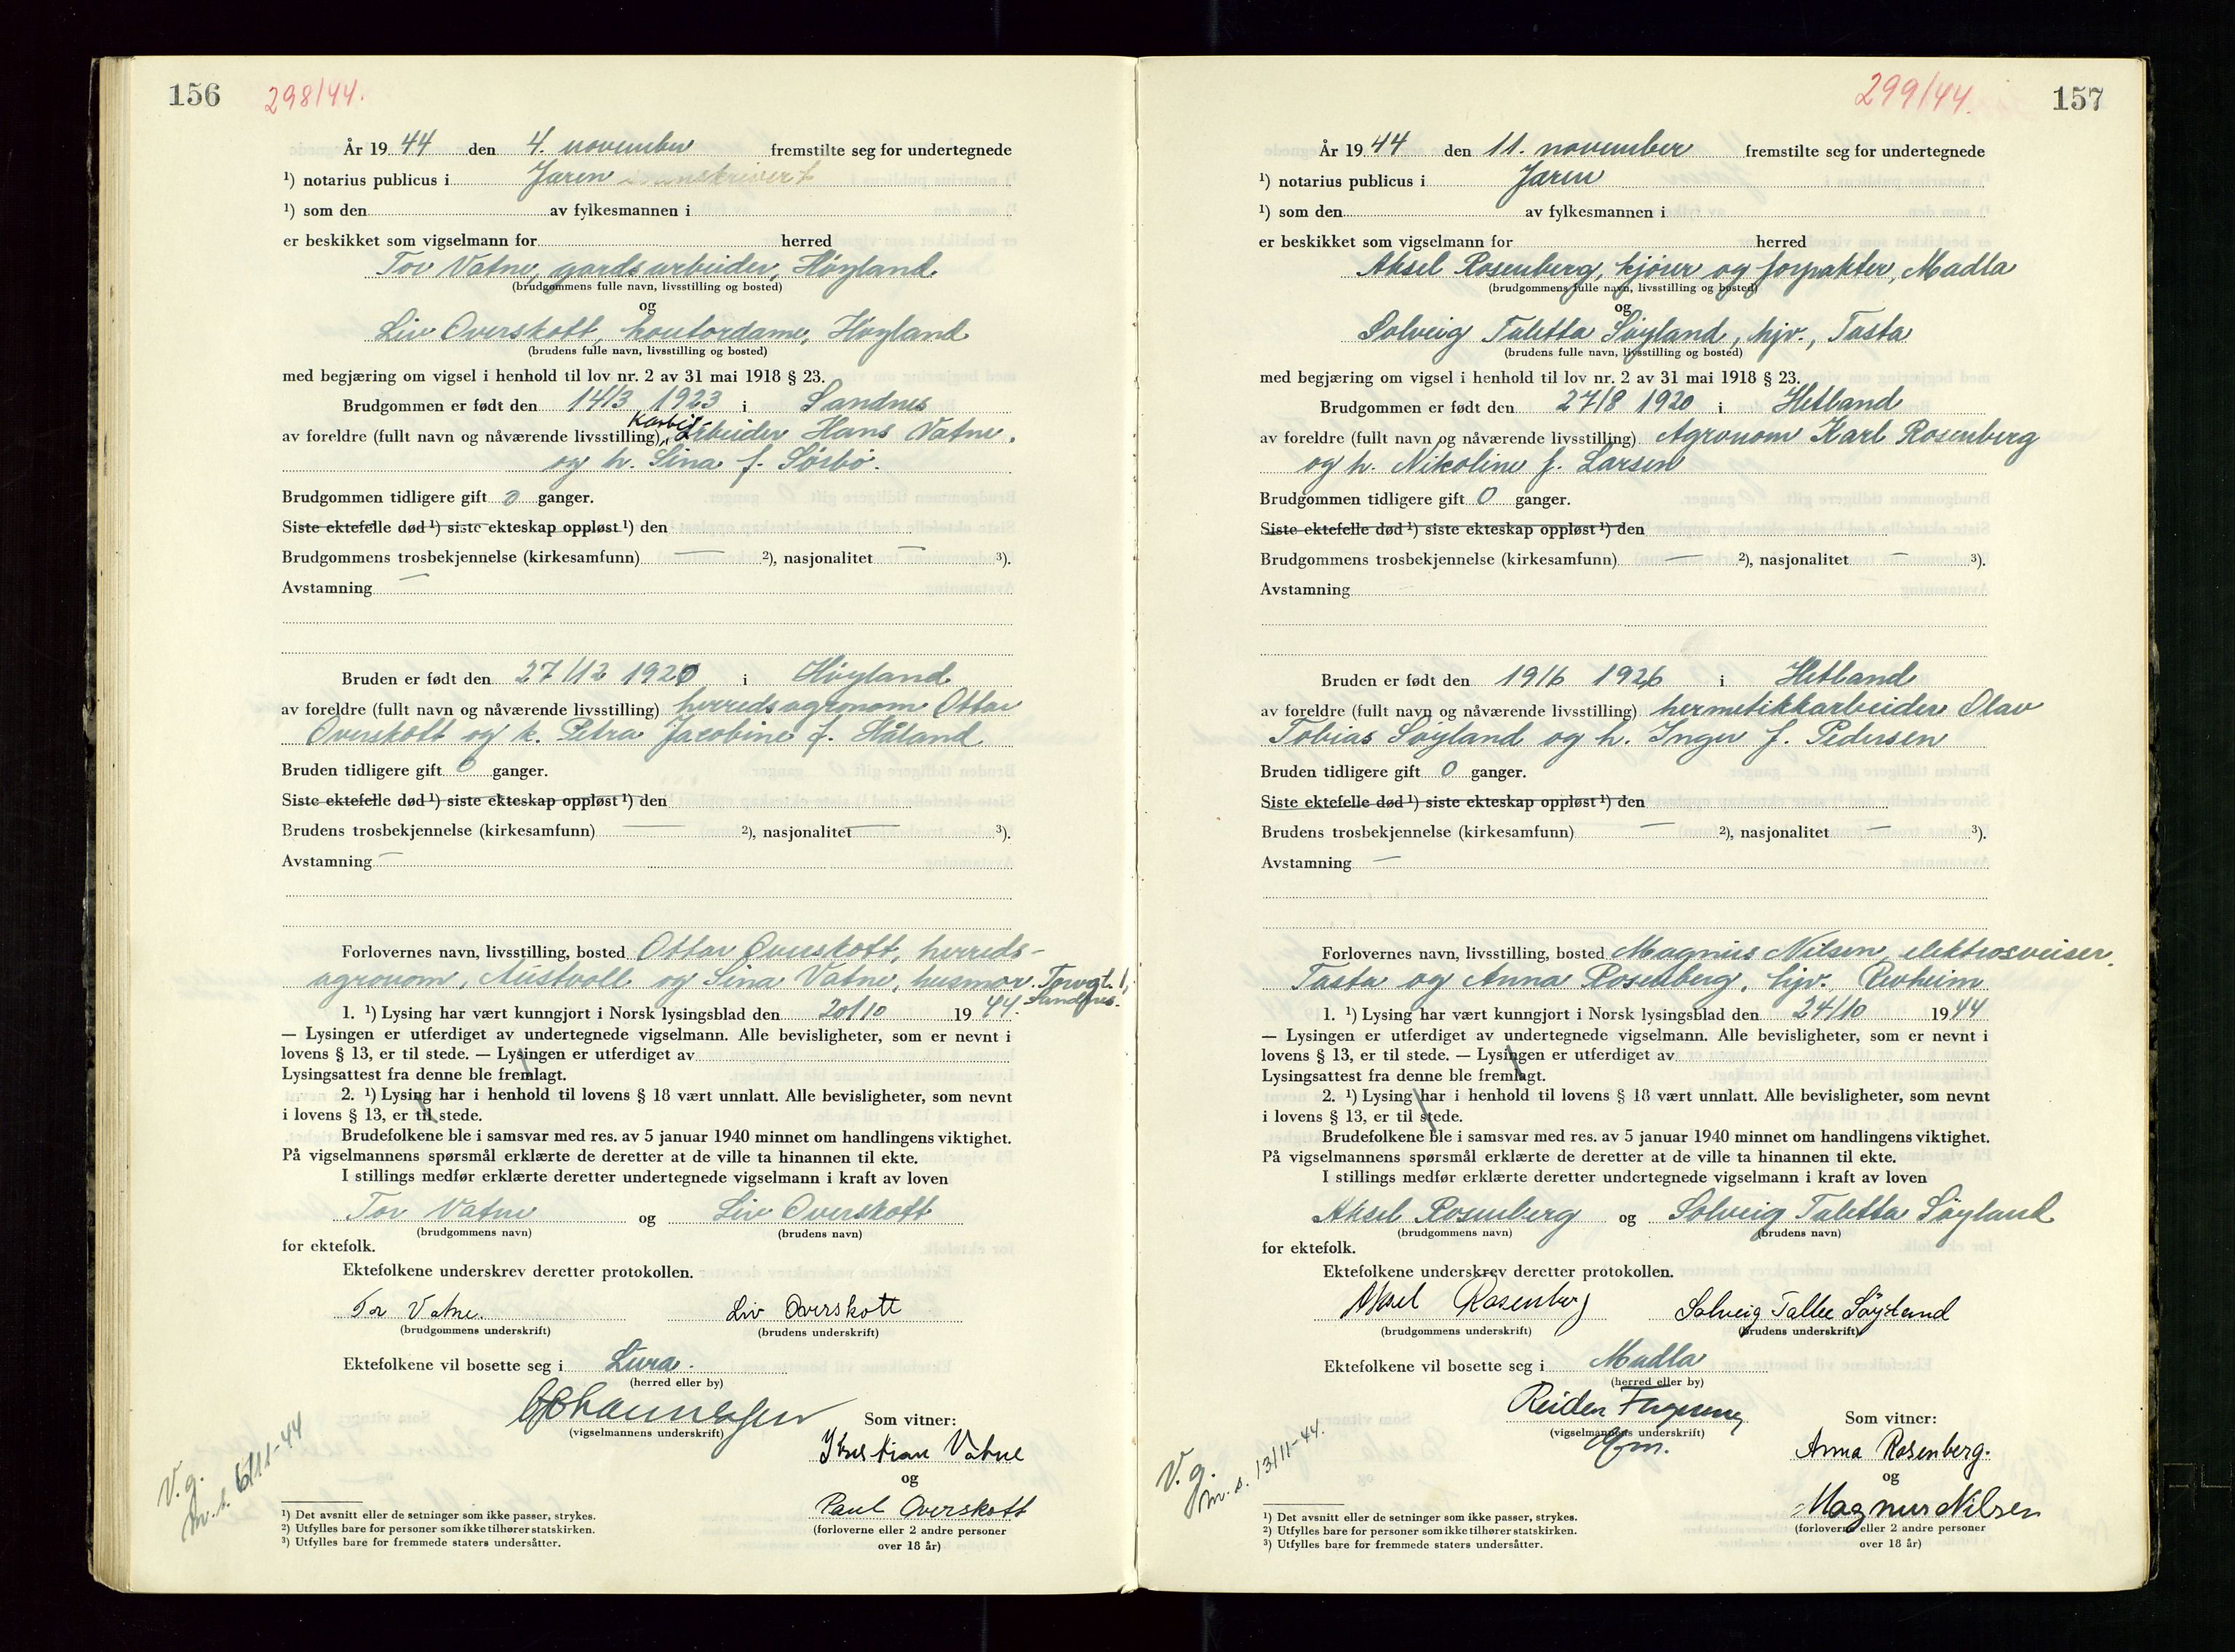 156 298/44.
År 19 44 den 4. november fremstilte seg for undertegnede
¹) notarius publicus i Jæren
¹) som den av fylkesmannen i
er beskikket som vigselmann for herred
Tor Vatne, gardsarbeider, Høyland.
(brudgommens fulle navn, livsstilling og bosted)
og
Liv Overskott, kontordame, Høyland
(brudens fulle navn, livsstilling og bosted)
med begjæring om vigsel i henhold til lov nr. 2 av 31 mai 1918 § 23.
Brudgommen er født den 14/3 1923 i Sandnes
av foreldre (fullt navn og nåværende livsstilling) arbeider Hans Vatne.
og h. Sina f. Sørbø.
Brudgommen tidligere gift 0 ganger.
Siste ektefelle død ¹) siste ekteskap oppløst ¹) den
Brudgommens trosbekjennelse (kirkesamfunn) — ²), nasjonalitet — ³).
Avstamning —
Bruden er født den 27/12 1920 i Høyland
av foreldre (fullt navn og nåværende livsstilling) herredsagronom Ottar
Overskott og k. Petra Jacobine f. Håland
Bruden tidligere gift 0 ganger.
Siste ektefelle død ¹) siste ekteskap oppløst ¹) den
Brudens trosbekjennelse (kirkesamfunn) — ²), nasjonalitet — ³).
Avstamning —
Forlovernes navn, livsstilling, bosted Ottar Overskott, herreds-
agronom, Austvoll og Sina Vatne, husmor. Torvgt. 1,
Sandnes.
1. ¹) Lysing har vært kunngjort i Norsk lysingsblad den 20/10 19 44.
— Lysingen er utferdiget av undertegnede vigselmann. Alle bevisligheter, som er nevnt i
lovens § 13, er til stede. — Lysingen er utferdiget av
Lysingsattest fra denne ble fremlagt.
2. ¹) Lysing har i henhold til lovens § 18 vært unnlatt. Alle bevisligheter, som nevnt
i lovens § 13, er til stede.
Brudefolkene ble i samsvar med res. av 5 januar 1940 minnet om handlingens viktighet.
På vigselmannens spørsmål erklærte de deretter at de ville ta hinannen til ekte.
I stillings medfør erklærte deretter undertegnede vigselmann i kraft av loven
Tor Vatne og Liv Overskott
(brudgommens navn) (brudens navn)
for ektefolk.
Ektefolkene underskrev deretter protokollen.
Tor Vatne. Liv Overskott
(brudgommens underskrift) (brudens underskrift)
Ektefolkene vil bosette seg i Lura.
(herred eller by)
(vigselmannens underskrift)
Som vitner:
Kristian Vatne
og
Paul Overskott
(forloverne eller 2 andre personer
over 18 år)
V. g.
m. s. 6/11-44
¹) Det avsnitt eller de setninger som ikke passer, strykes.
²) Utfylles bare for personer som ikke tilhører statskirken.
³) Utfylles bare for fremmede staters undersåtter.
299/44. 157
År 19 44 den 11. november fremstilte seg for undertegnede
¹) notarius publicus i Jæren
¹) som den av fylkesmannen i
er beskikket som vigselmann for herred
Aksel Rosenberg, kjører og forpakter, Madla
(brudgommens fulle navn, livsstilling og bosted)
og
Solveig Taletta Søyland, hjv., Tasta
(brudens fulle navn, livsstilling og bosted)
med begjæring om vigsel i henhold til lov nr. 2 av 31 mai 1918 § 23.
Brudgommen er født den 27/8 1920 i Hetland
av foreldre (fullt navn og nåværende livsstilling) Agronom Karl Rosenberg
og h. Nikoline f. Larsen
Brudgommen tidligere gift 0 ganger.
Siste ektefelle død ¹) siste ekteskap oppløst ¹) den
Brudgommens trosbekjennelse (kirkesamfunn) — ²), nasjonalitet — ³).
Avstamning
Bruden er født den 19/6 1926 i Hetland
av foreldre (fullt navn og nåværende livsstilling) hermetikkarbeider Olav
Tobias Søyland og h. Inger f. Pedersen
Bruden tidligere gift 0 ganger.
Siste ektefelle død ¹) siste ekteskap oppløst ¹) den
Brudens trosbekjennelse (kirkesamfunn) — ²), nasjonalitet — ³).
Avstamning —
Forlovernes navn, livsstilling, bosted Magnus Nilsen, elektrosveiser,
Tasta og Anna Rosenberg, hjv. Revheim
1. ¹) Lysing har vært kunngjort i Norsk lysingsblad den 24/10 19 44
— Lysingen er utferdiget av undertegnede vigselmann. Alle bevisligheter, som er nevnt i
lovens § 13, er til stede. — Lysingen er utferdiget av
Lysingsattest fra denne ble fremlagt.
2. ¹) Lysing har i henhold til lovens § 18 vært unnlatt. Alle bevisligheter, som nevnt
i lovens § 13, er til stede.
Brudefolkene ble i samsvar med res. av 5 januar 1940 minnet om handlingens viktighet.
På vigselmannens spørsmål erklærte de deretter at de ville ta hinannen til ekte.
I stillings medfør erklærte deretter undertegnede vigselmann i kraft av loven
Aksel Rosenberg og Solveig Taletta Søyland
(brudgommens navn) (brudens navn)
for ektefolk.
Ektefolkene underskrev deretter protokollen.
Aksel Rosenberg Solveig Søyland
(brudgommens underskrift) (brudens underskrift)
Ektefolkene vil bosette seg i Madla
(herred eller by)
(vigselmannens underskrift)
Som vitner:
Anna Rosenberg.
og
Magnus Nilsen
(forloverne eller 2 andre personer
over 18 år)
V. g.
m. s. 13/11-44.
¹) Det avsnitt eller de setninger som ikke passer, strykes.
²) Utfylles bare for personer som ikke tilhører statskirken.
³) Utfylles bare for fremmede staters undersåtter.